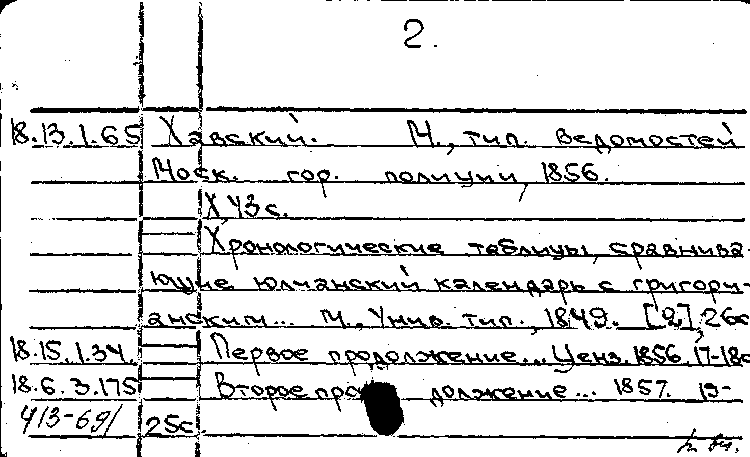 2.
18.13.1.65 Хавский. М., тип. Ведомостей
Моск. гор. полиции, 1856.
X, 43с.
Хронологические таблицы, сравнива-
ющие юлианский календарь с григори-
анским... М., Унив. тип., 1849. [2], 26с
18.15.1.34. Первое продолжение... Ценз. 1856. 17-18с
18.6.3.175 Второе продолжение... 1857. 19-
413-69/ 25с.